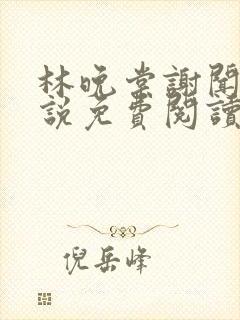 林晚棠謝聞
說免費閱讀
倪岳峰